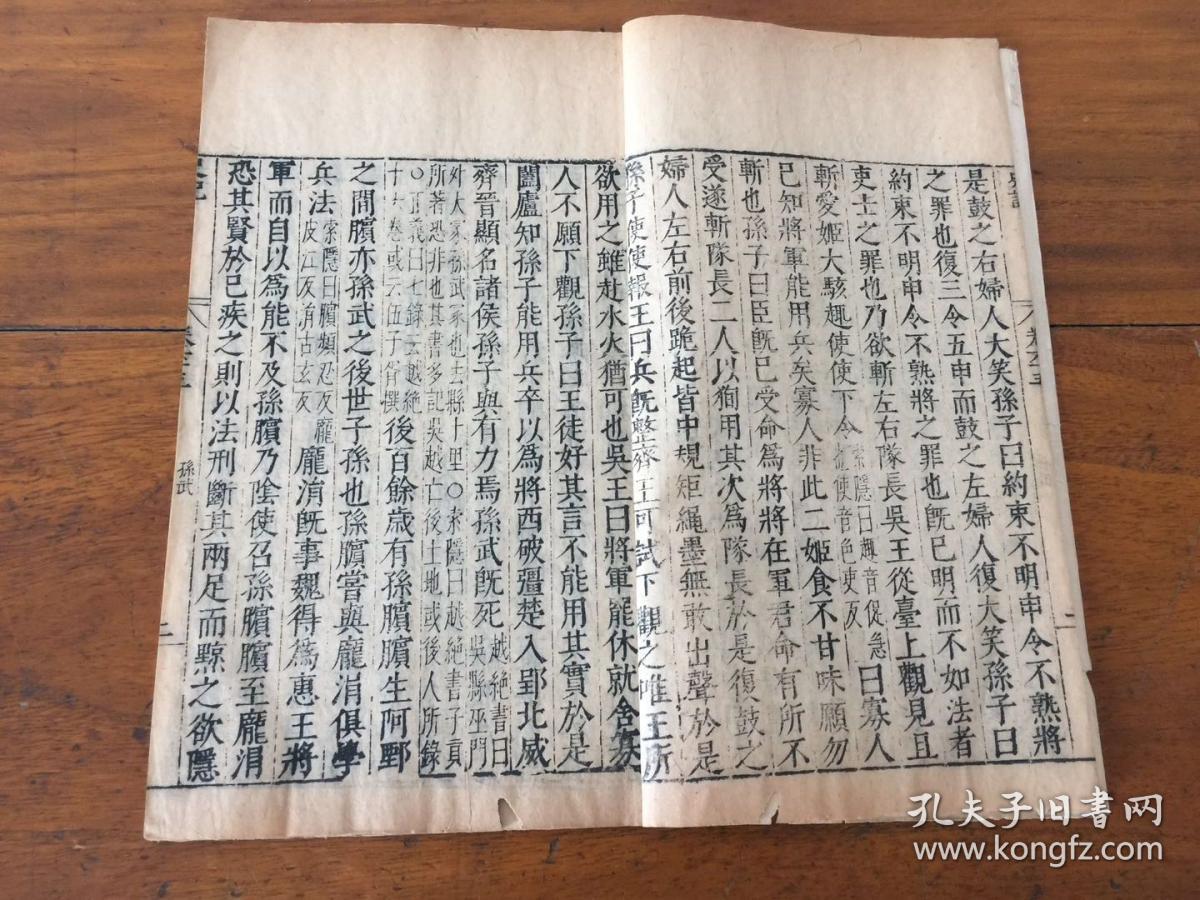 是鼓之右婦人大笑孫子曰約束不明申令不熟將
之罪也復三令五申而鼓之左婦人復大笑孫子曰
約束不明申令不熟將之罪也既已明而不如法者
吏士之罪也乃欲斬左右隊長吳王從臺上觀見且
斬愛姬大駭趣使使下令索隱曰趣音促急使音色吏反曰寡人
已知將軍能用兵矣寡人非此二姬食不甘味願勿
斬也孫子曰臣既已受命為將將在軍君命有所不
受遂斬隊長二人以徇用其次為隊長於是復鼓之
婦人左右前後跪起皆中規矩繩墨無敢出聲於是
孫子使使報王曰兵既整齊王可試下觀之唯王所
欲用之雖赴水火猶可也吳王曰將軍罷休就舍寡
人不願下觀孫子曰王徒好其言不能用其實於是
闔廬知孫子能用兵卒以為將西破彊楚入郢北威
齊晉顯名諸侯孫子與有力焉孫武既死越絶書曰吳縣巫門
外大冢孫武冢也去縣十里○索隱曰越絶書子貢
所著恐非也其書多記吳越亡後土地或後人所錄
○正義曰七錄云越絶十六卷或云伍子胥撰後百餘歲有孫臏臏生阿鄄
之間臏亦孫武之後世子孫也孫臏嘗與龐涓俱學
兵法索隱曰臏頻忍反龐皮江反涓古玄反龐涓既事魏得為惠王將
軍而自以為能不及孫臏乃陰使召孫臏臏至龐涓
恐其賢於己疾之則以法刑斷其兩足而黥之欲隱
孫武
二
二
孔夫子旧书网
www.kongfz.com